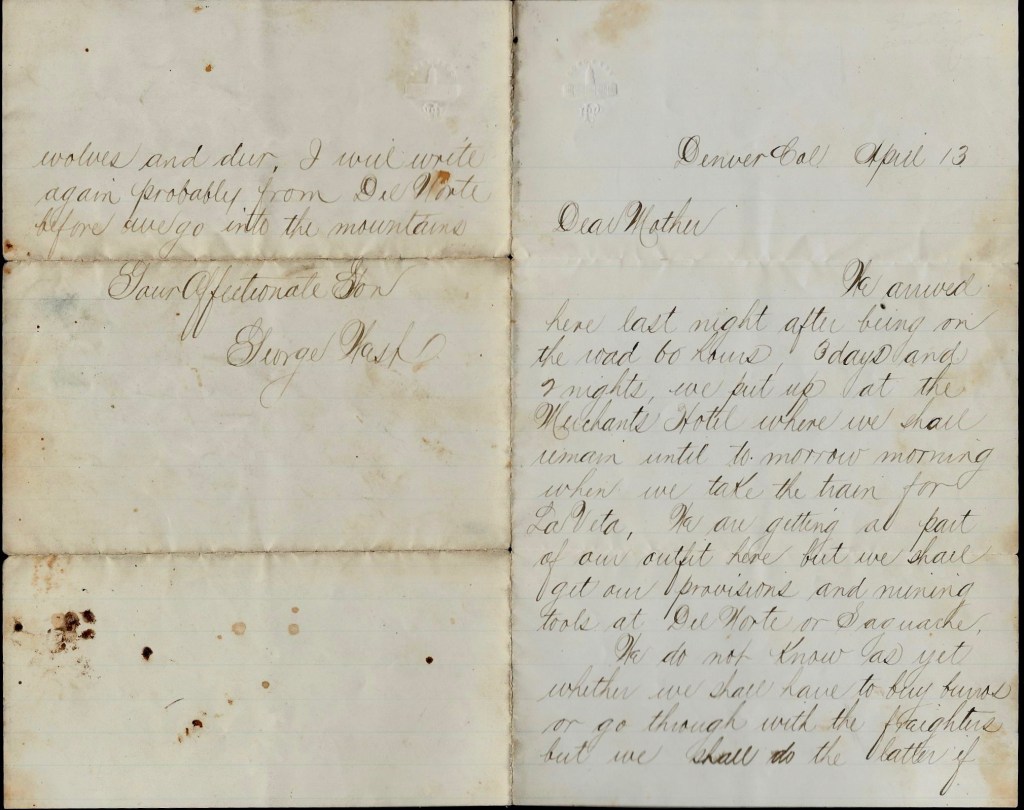 Denver Col April 13
Dear Mother
We arrived
here last night after being on
the road 60 hours, 3 days and
2 nights, we put up at the
Merchants Hotel where we shall
remain until to-morrow morning
when we take the train for
La Veta, We are getting a part
of our outfit here but we shall
get our provisions and mining
tools at Del Norte or Saguache.
We do not know as yet
whether we shall have to buy burros
or go through with the freighters
but we shall do the latter if
wolves and deer. I will write
again probably from Del Norte
before we go into the mountains
Your Affectionate Son
George